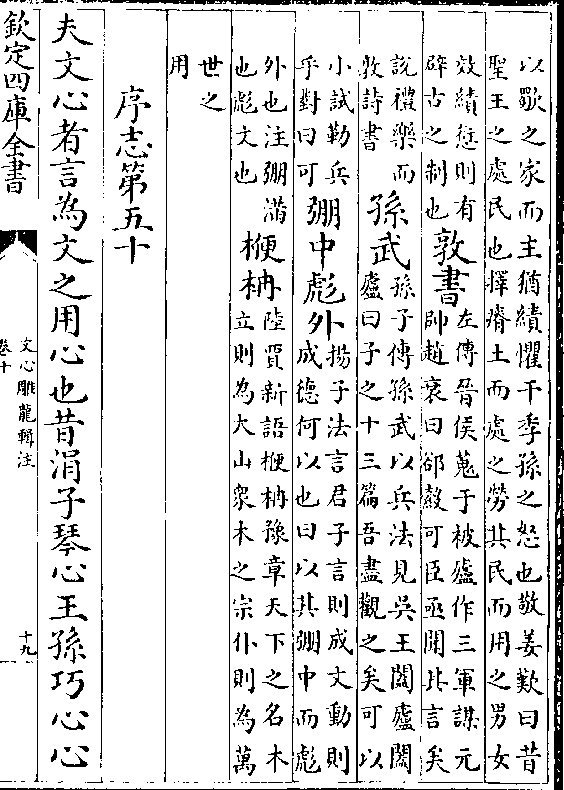 以歜之家而主猶績懼干季孫之怒也敬姜歎曰昔
聖王之處民也擇瘠土而處之勞其民而用之男女
效績愆則有
辟古之制也
敦書
左傳晉侯蒐于被廬作三軍謀元
帥趙衰曰郤縠可臣亟聞其言矣
說禮樂而
敦詩書
孫武
孫子傳孫武以兵法見吳王闔廬闔
廬曰子之十三篇吾盡觀之矣可以
小試勒兵
乎對曰可
弸中彪外
揚子法言君子言則成文動則
成德何以也曰以其弸中而彪
外也注弸滿
也彪文也
楩柟
陸賈新語楩柟豫章天下之名木
立則為大山衆木之宗仆則為萬
世之
用
序志第五十
夫文心者言為文之用心也昔涓子琴心王孫巧心心
欽定四庫全書
文心雕龍輯注
卷十
十九